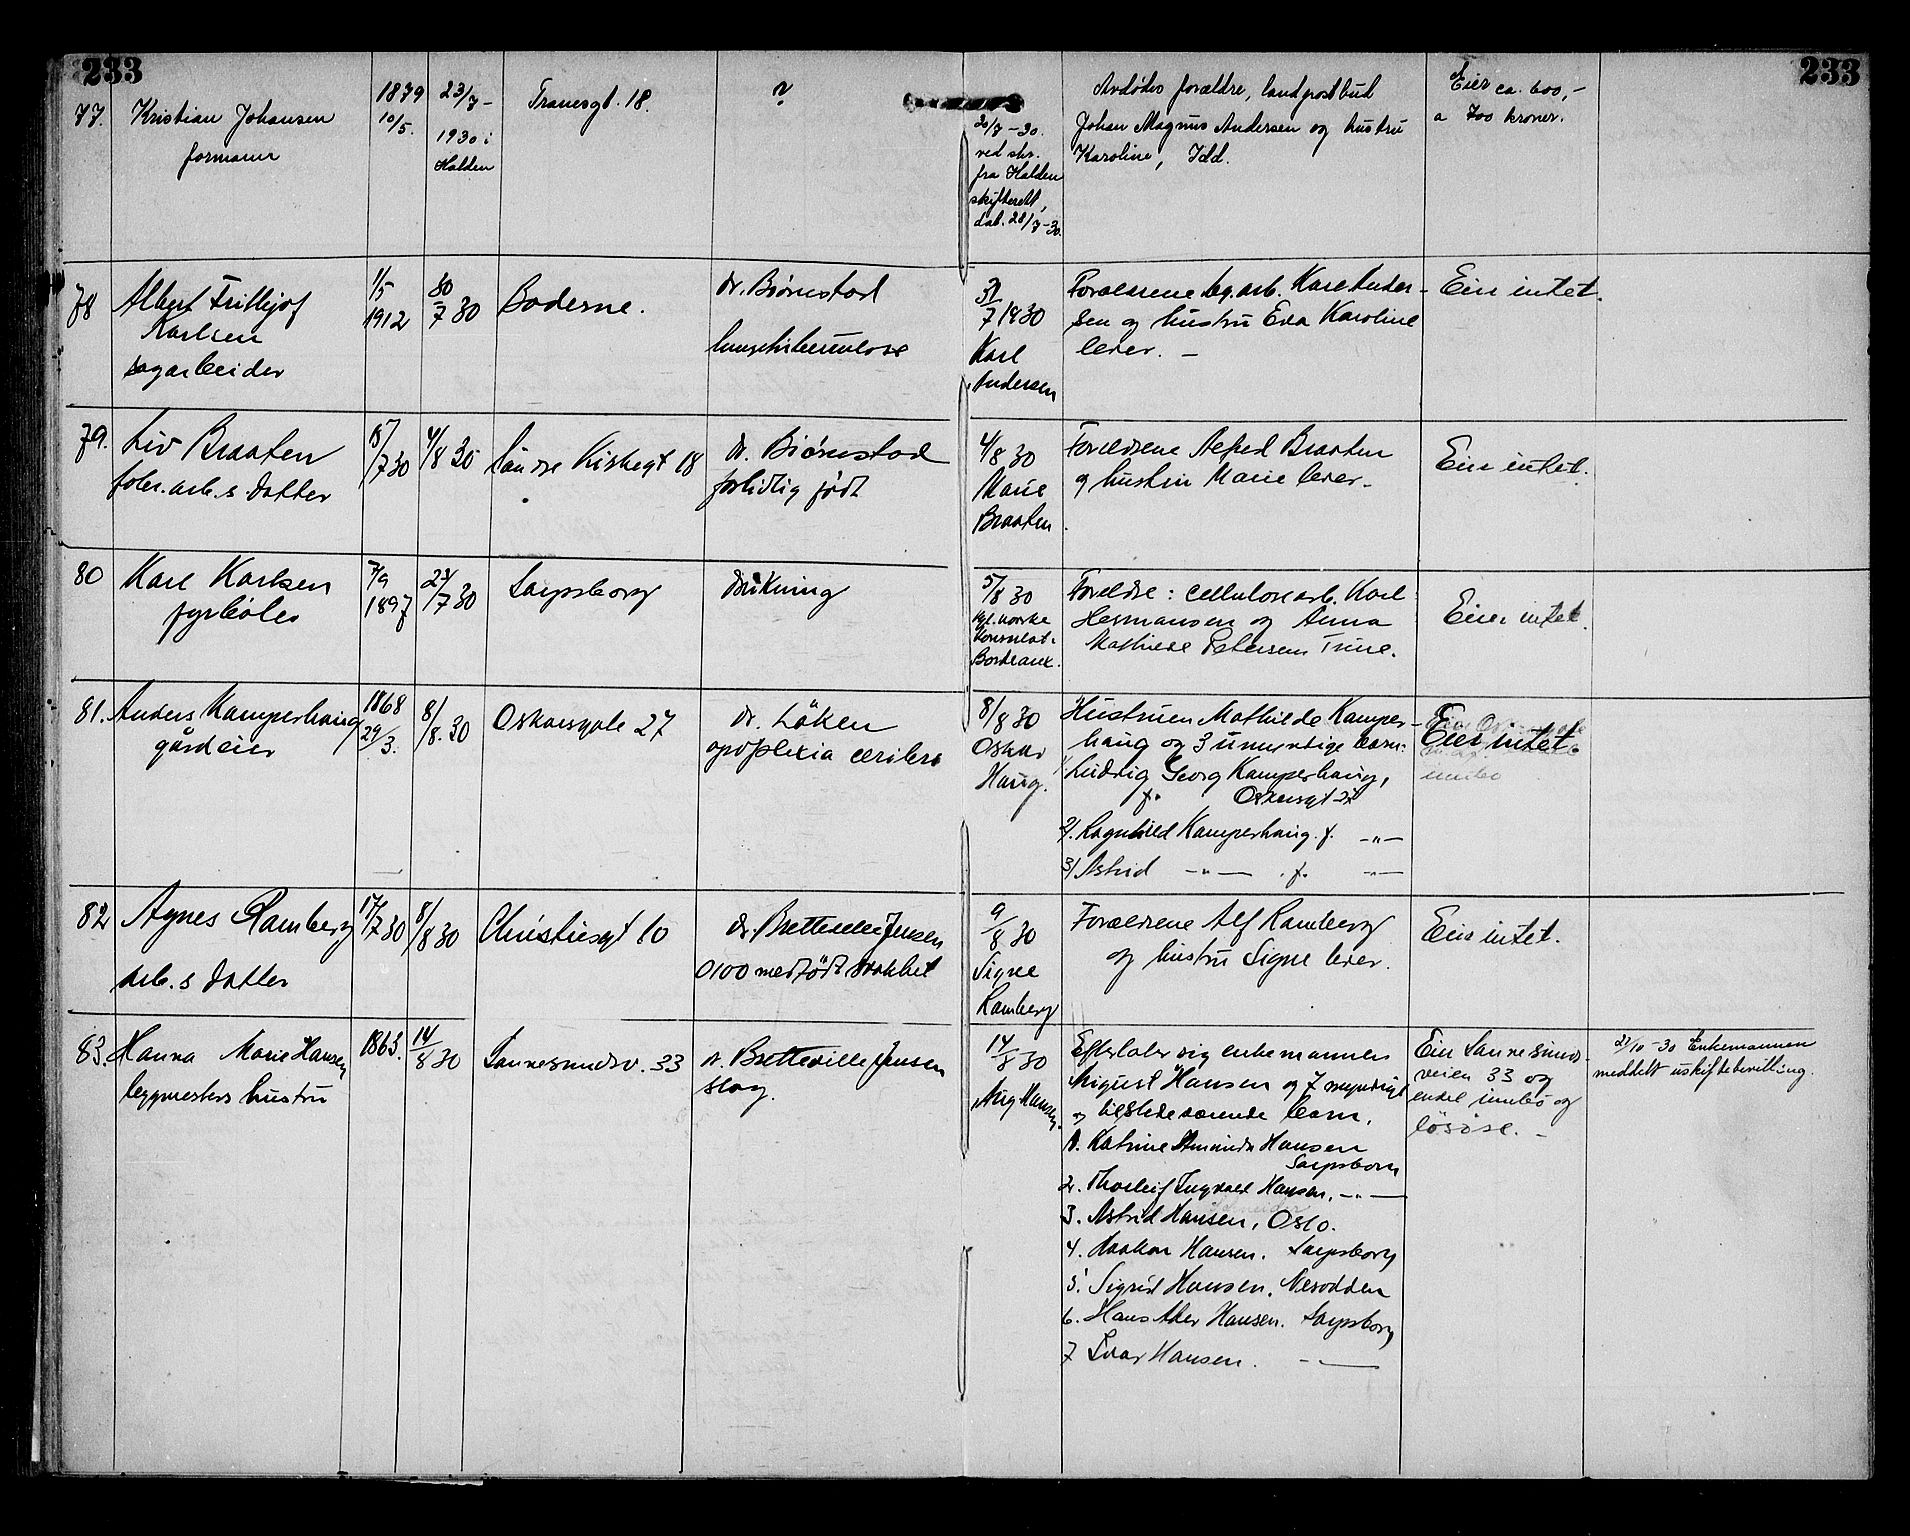 233
233
77. Kristian Johansen
formann
1879
10/5.
23/7 -
1930 i
Halden
Tranesgt. 18.
?
30/7 - 30.
ved skr.
fra Halden
skifterett,
dat. 28/7 - 30.
Avdødes forældre, landpostbud
Johan Magnus Andersen og hustru
Karoline, Idd.
Eier ca. 600,-
a 700 kroner.
78 Albert Frithjof
Karlsen
sagarbeider
1/5
1912
30
7 30
Boderne.
dr. Bjørnstad
lungetuberkulose
31
7 1930
Karl
Andersen
Forældrene Karl Ander-
sen og hustru Eva Karoline
lever. -
Eier intet.
79. Liv Braaten
fabr. arb. s datter
15/
7 30
4/8 30
Søndre Kirkegt 18
dr. Bjørnstad
fortidlig født
4/8 30
Marie
Braaten.
Forældrene Alfred Braaten
og hustru Marie lever.
Eier intet.
80 Karl Karlsen
fyrbøter
7/9
1897
27/
7 30
Sarpsborg
Drukning
5/8 30
Kgl. norske
Konsulat.
Bordeaux.
Foreldre: cellulosearb. Karl
Hermansen og Anna
Mathilde Petersen Tune.
Eier intet.
81. Anders Kamperhaug
gårdeier
1868
29/3.
8/
8. 30
Oskarsgate 27
dr. Løken
apoplexia cerebri
8/8 30
Oskar
Haug.
Hustruen Mathilde Kamper-
haug og 3 umyndige barn:
1/ Ludvig Georg Kamperhaug,
f. Oskarsgt 27
2/. Ragnhild Kamperhaug. f. -"-
3/ Astrid -"- . f. -"-
Eier intet.
innbo
82 Agnes Ramberg
arb. s datter
17/
7 30
8/
8 30
Christiesgt 10
dr. Bretteville Jensen
0100 medfødt svakhet
9
8 30
Signe
Ramberg
Forældrene Alf Ramberg
og hustru Signe lever.
Eier intet.
83. Hanna Marie Hansen
byggmesters hustru
1863.
14
8 30
Sannesundsv. 33
dr. Bretteville Jensen
slag.
14
8 30
Aug Hansen.
Efterlater sig enkemannen
August Hansen og 7 myndige
og tilstedeværende barn.
1. Katrine Hansen
Sarpsborg
2. Thorleif Ingvald Hansen. -"-
3. Astrid Hansen, Oslo.
4. Haakon Hansen. Sarpsborg
5. Sigrid Hansen. Nesodden
6. Hans Hansen. Sarpsborg
7 Ivar Hansen. -"-
Eier Sannesunds-
veien 33 og
endel innbo og
løsøre. -
21/10 - 30 Enkemannen
meddelt uskiftebevilling.